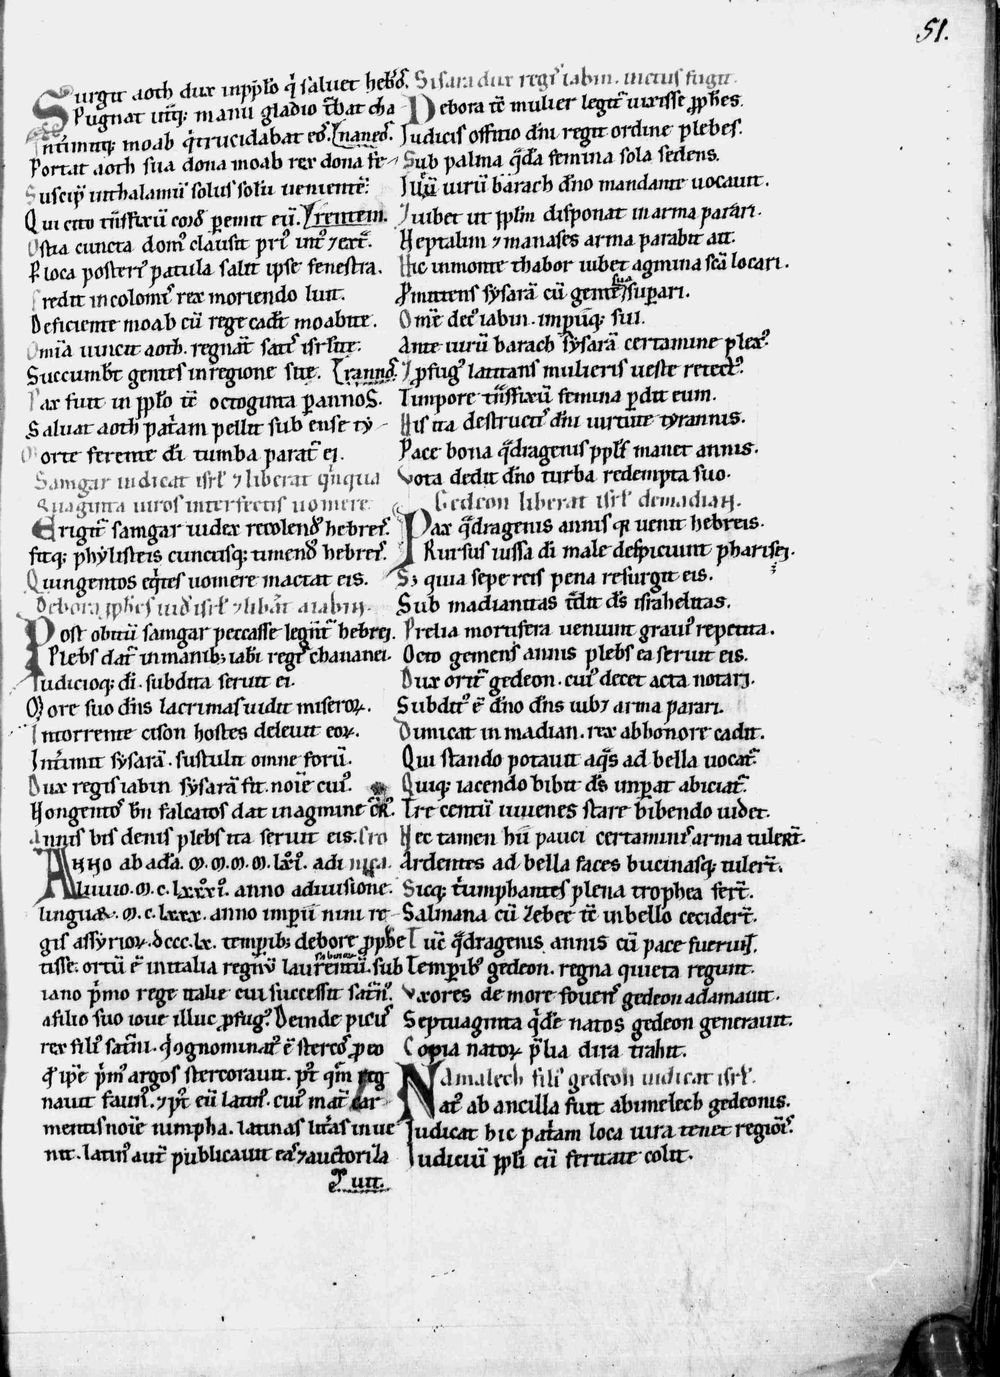 51.
Surgit aoth dux inp̄p̄lo q̓ saluet heb̓oꝝ.
Pugnat utq̓; manu gladio t̄bat cha
Int̓imitq; moab q̓ trucidabat eos. [naneoꝝ.
Portat aoth sua dona moab rex dona fe
Suscip̓ inthalamū solus solū uenientē. [rentem.
Qui cito t̄n̄sfixū perimit eū.
Ostia cuncta dom̓ clausit pri̓ int̓ ⁊ ext̓.
P̱ loca posteri̓ patula salit ipse fenestra.
Credit incolomi̓ rex moriendo luit.
Deficiente moab cū rege cad̓t moabite.
Omīa uincit aoth. regnat̄ sat̓ isrl̄ite.
Succumb̓t gentes inregione site. [ranno̓.
Pax fuit in p̄p̄lo t̄c octoginta p̱ annos.
Saluat aoth pat̓am pellit sub ense ty
Morte ferente d̄i tumba parat̓ ei.
Samgar iudicat isrl̄ ⁊ liberat q̓nqua
quaginta uiros interfectis uomere.
Erigit̓ samgar iudex recolend̓ hebreis̓.
fitq; phylisteis cunctisq; timend̓ hebreis̓.
Quingentos eq̓tes uomere mactat eis.
Debora p̄p̄hes iud̓ isrl̄ ⁊ lib̓at aiabin.
Post obitū samgar peccasse legūt̓ hebrei.
Plebs dat̓ inmanib; iabi regi̓ chananei.
Iudicioq; d̄i. subdita seruit ei.
More suo dn̄s lacrimas uidit miseroꝝ.
Intorrente cison hostes deleuit eoꝝ.
Int̓imit sysarā. sustulit omne forū.
Dux regis iabin sysarā fit. noīe cui̓.
Nongento̓ bn̄ falcatos dat inagmine c̄r̄.
Annis bis denis plebs ita seruit eis.
Anno ab adā. M. M. M. M. lxi. adi
luuio. M. c. lxxxi. anno adiuisione.
linguaꝝ. M. c. lxxx. anno imperii nini re
gis assyrioꝝ. dccc. lx. temp̱ib; debore p̱phe
tisse. ortū ē initalia regnū laurentū. sub
iano p̓mo rege italie cui successit sat̓n̓.
afilio suo ioue illuc p̱fug̓. Deinde picus̓
rex fili̓ sat̓ni. q̓ ꝯgnominat̓ ē sterco̓ p̱ eo
q̓ ip̄e p̓m̓ argos stercorauit. p̓t q̓m reg
nauit faun̓. ⁊ p̓t eū latin̓. cui̓ mat̓ car
mentis noīe nimpha. latinas lit̓as inue
nit. latin̓ aut̄ publicauit eas̓ ⁊ auctori̓ la
uit.
Sisara dux regis̓ iabin. uictus fugit.
Debora t̄c mulier legit̓ uixisse p̱p̄hes.
Iudicis offitio d̄ni regit ordine plebes̓.
Sub palma q̓dā femina sola sedens.
Iussū uirū barach d̄no mandante uocauit.
Iubet ut p̄p̄lm̄ disponat inarma parari.
Neptalim ⁊ manases arma parabit ait.
Hic inmonte thabor iubet agmina sc̄a locari.
P̱mittens sysarā cū gente sua sup̱ari.
Omē dec̓ iabin. imp̱iūq; sui.
Ante uirū barach sysarā certamine plex̓.
I p̱fug̓ latitans mulieris ueste retect̓.
Timpore t̄n̄sfixū femina p̱dit eum.
His ita destructi̓ d̄ni uirtute tyrannis.
Pace bona q̓dragenis p̄p̄ls̄ manet annis.
Vota dedit d̄no turba redempta suo.
Gedeon liberat isrl̄ demadian.
Pax q̓dragenis annis q̓ uenit hebreis.
Rursus iussa d̄i male despiciunt pharisei.
S; quia sepe reis pena resurgit eis.
Sub madianitas t̓dit d̄s israhelitas.
Prelia mortifera ueniunt graui̓ repetita.
Octo gemens̓ annis plebs ea seruit eis.
Dux orit̓ gedeon. cui̓ decet acta notari.
Subdit̓ ē d̄no d̄ns iub⁊ arma parari.
Dimicat in madian. rex abhonore cadit.
Qui stando potauit aq̓s ad bella uocat̓.
Quiq; iacendo bibit d̄s imp̱at abiciat̓.
Tre centū iuuenes stare bibendo uidet.
Nec tamen hii pauci certaminis̓ arma tuler̄t.
Ardentes ad bella faces bucinasq; tuler̄t.
Sicq; t̓umphantes plena trophea fer̄t.
Salmana cū zebee t̄c inbello cecider̄t.
Tūc q̓dragenis annis cū pace fuerūt.
Temp̱ib̓ gedeon. regna quieta regunt.
Vxores de more fouens̓ gedeon adamauit.
Septuaginta q̓de natos gedeon generauit.
Copia natoꝝ p̓lia dira trahit.
Namalech fili̓ gedeon iudicat isrl̄.
Nat̓ ab ancilla fuit abimelech gedeonis.
Iudicat hic pat̓am loca uira tenet regiōis̓.
Iudiciū p̄p̄li cū feritate colit.